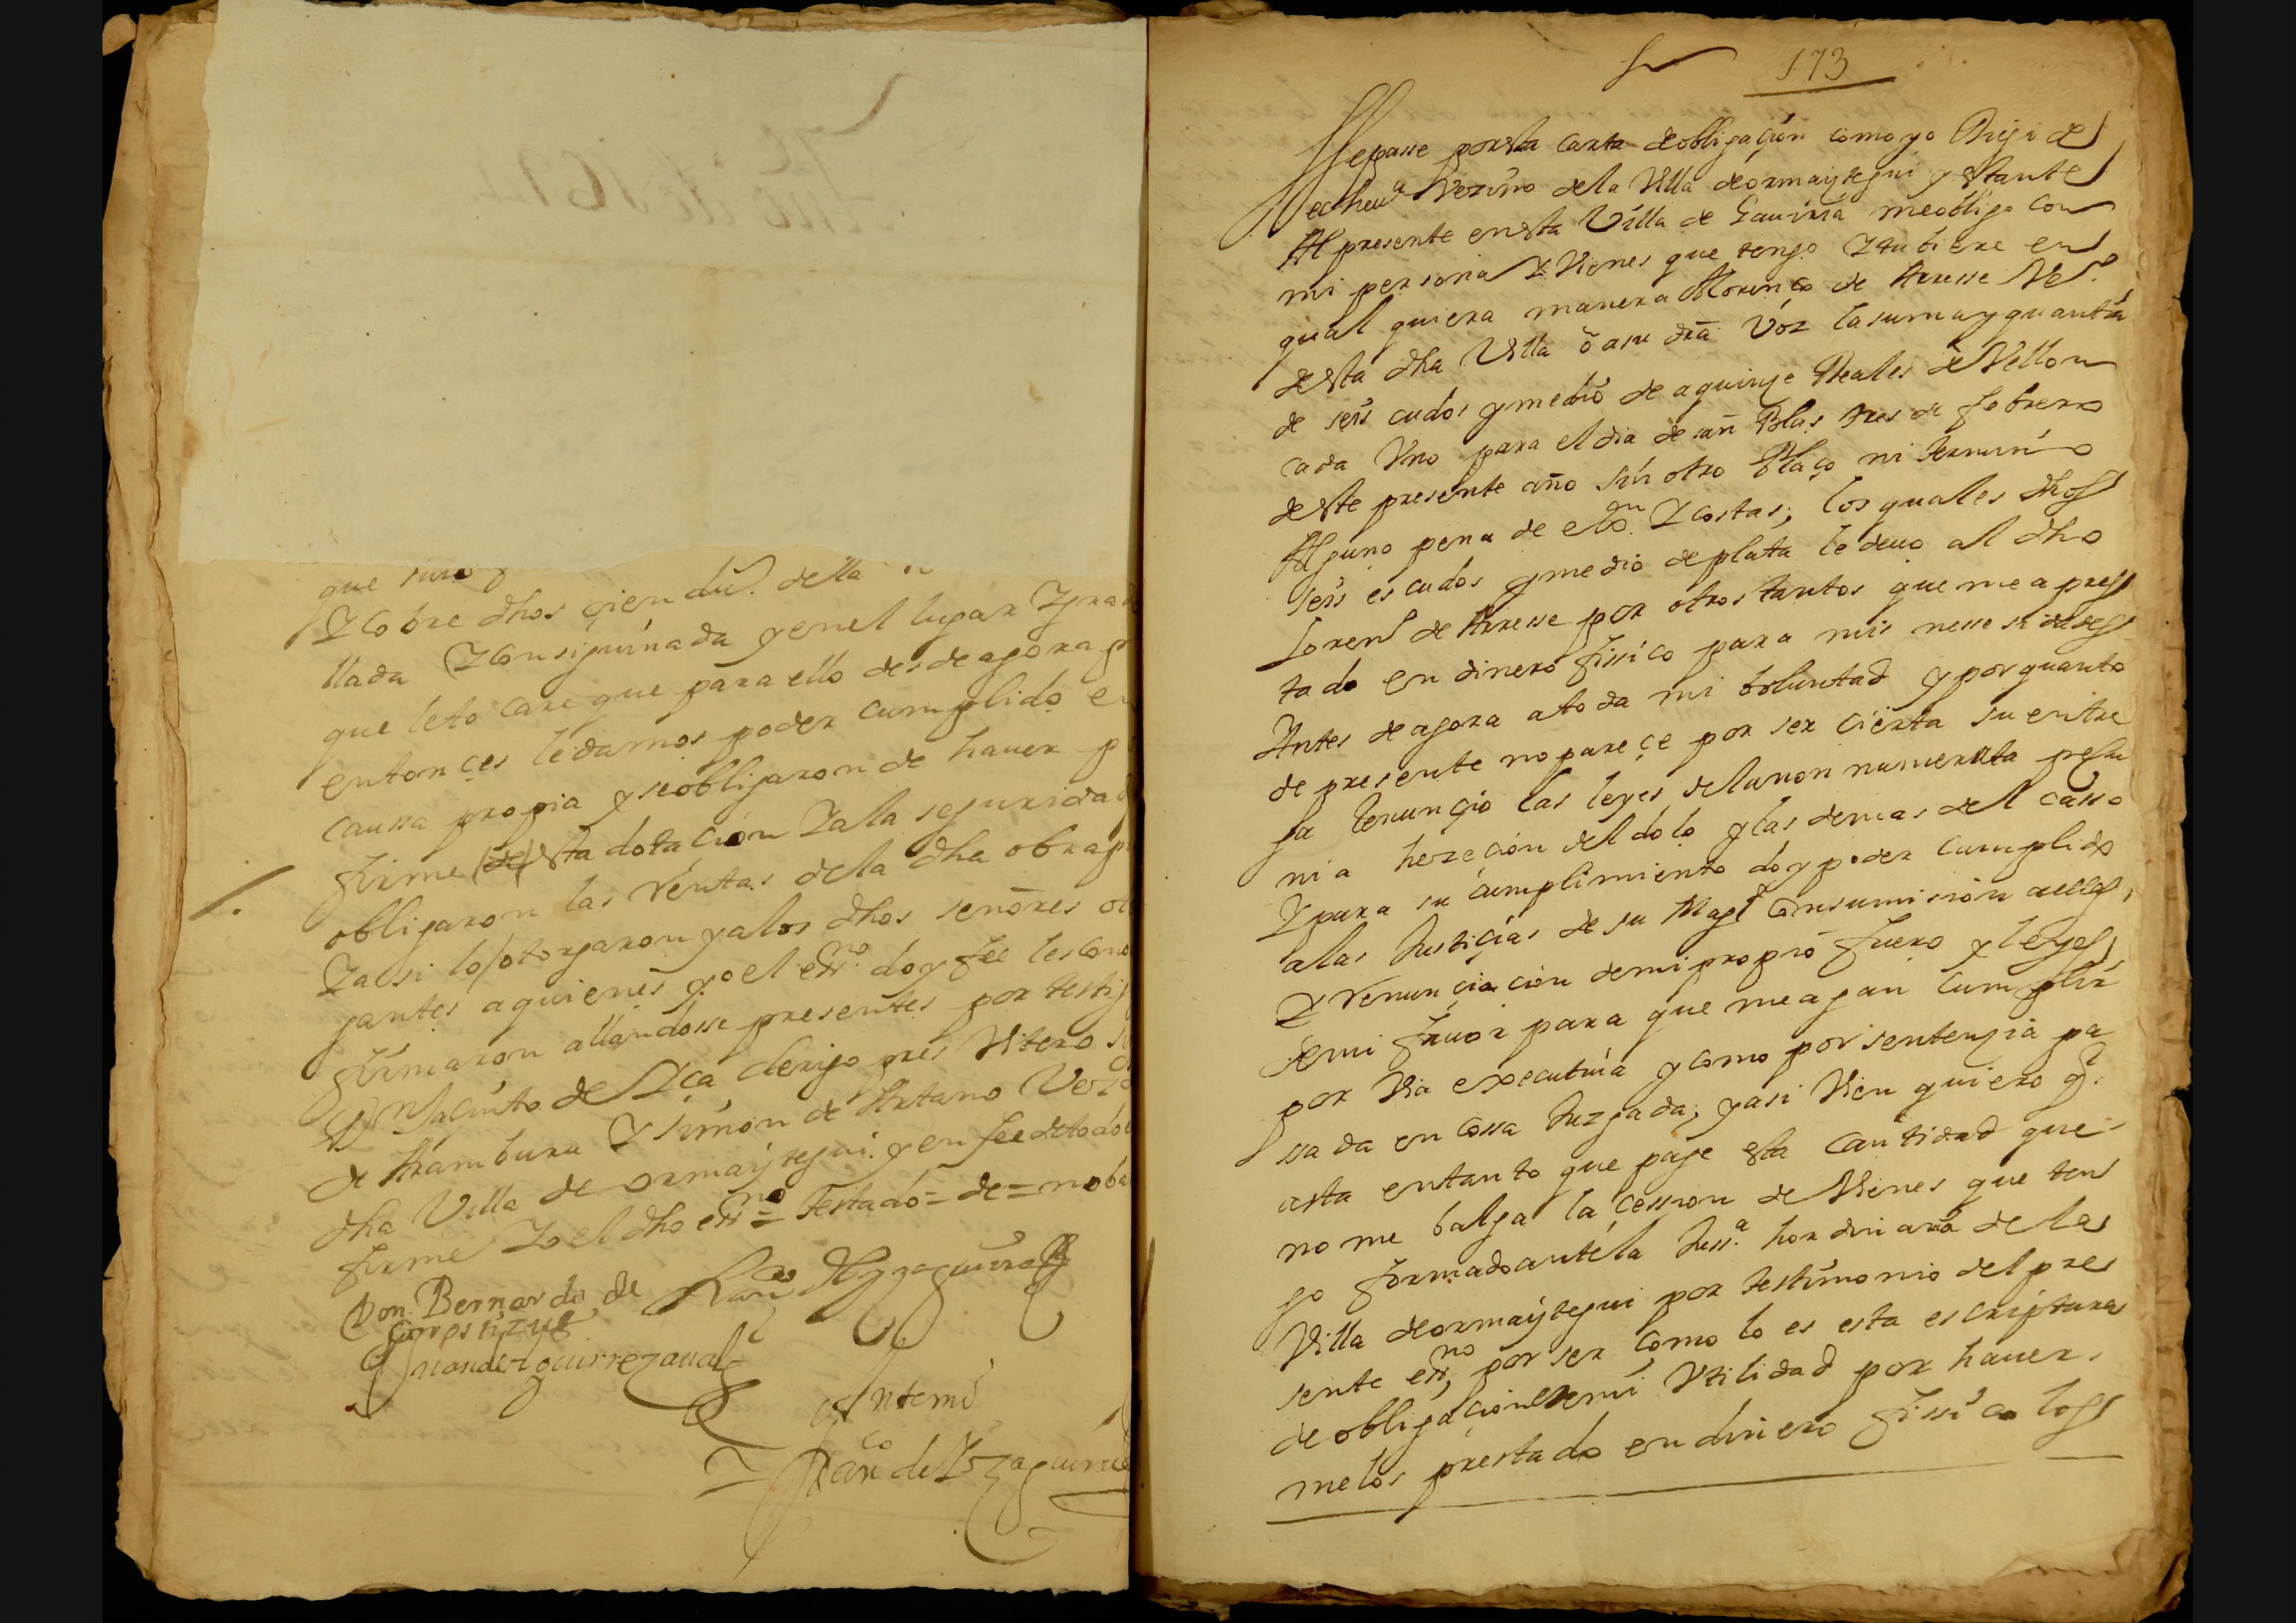 que
Y cobre dhos çien du.s della
llada Y Consiguinada y en el lugar Y
que le to care que para ello desde agora
entonçes le damos poder cumplido en
caussa propia y se obligaron de hauer
firme (de) esta dotaçion Y a la seguridad
obligaron las Rentas de la dha obra
Y asi lo otorgaron y a los dhos señores
gantes a quienes yo el essno doy fee les cono
firmaron allandosse presentes por testig
Dn Jaçinto de clerigo pres Vitero
de Arambura Y simon de Artano Vez
dha Villa de ormaiztegui y en fee de todo
firme Yo el dho essno = Testado = de = no ba
Don Bernardo de
Ante mi
Franco de
173
Sepasse por esta carta de obligaçion como yo de
echeua Vezino de la Villa de ormaiztegui y estante
Al presente en esta Villa de Gauiria me obligo con
mi persona Y Vienes que tengo Y tubiere en
qual quiera manera a Lorenço de Aresse Veo
de esta dha Villa o a su dra Voz la suma y quantia
de seis cudos y medio de a quinçe Reales de Vellon
cada Vno para el dia de san Blas tres de febrero
de este presente año sin otro Plaço ni termino
Alguno pena de exon Y costas; los quales dhos
seis escudos y medio de plata le deuo al dho
Loren de Aresse por otros tantos que me a pres
tado en dinero fissico para mis nessesidades
Antes de agora a toda mi boluntad y por quanto
de presente no pareçe por ser cierta su entre
ga Renunçio las leyes de la non numerata pecu
nia hezecion del dolo y las demas del casso
Y para su cumplimiento doy poder cumplido
a las Justiçias de su Magd Con sumision a ellas,
Y renunçiacion de mi propio fuero y leyes
de mi fauor para que me agan cumplir
por Via executiua y como por sentençia pa
ssada en cossa Juzgada; y asi Vien quiero q.
asta en tanto que page esta cantidad que
no me balga la çession de Vienes que ten
go formado ante la Jussa hordinaria de la
Villa de ormaiztegui por testimonio del pre
sente essno, por ser como lo es esta escriptura
de obligaçion en mi Vtilidad por hauer
melos prestado en dinero fissico los